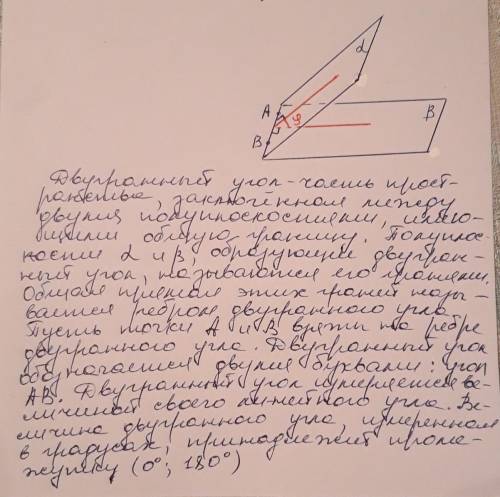 α
A
B
φ
β
Двугранный угол - часть прост-
ранства, заключенная между
двумя полуплоскостями, имею-
щими общую границу. Полуплос-
кости α и β, образующие двугран-
ный угол, называются его гранями.
Общая прямая этих граней назы-
вается ребром двугранного угла
Пусть точки А и В взяты на ребре
двугранного угла. Двугранный угол
обозначается двумя буквами: угол
АВ. Двугранный угол измеряется ве-
личиной своего линейного угла. Ве-
личина двугранного угла, измеренная
в градусах, принадлежит проме-
жутку (0°; 180°)